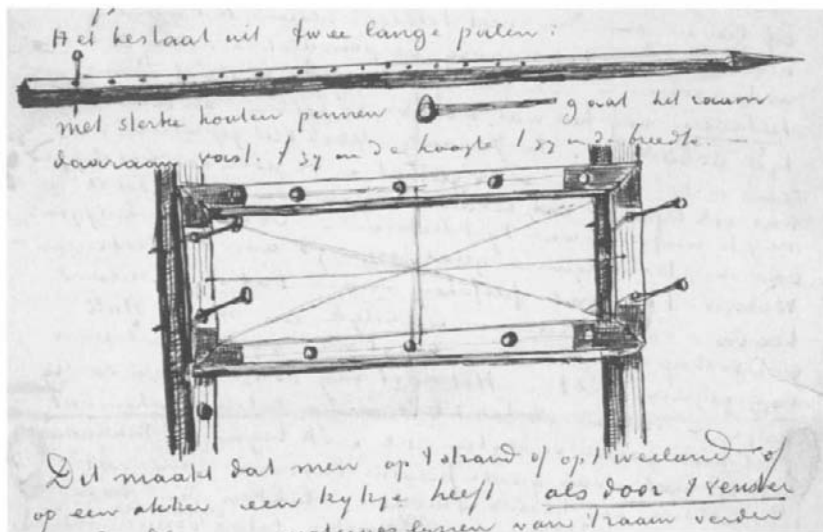 Het bestaat uit twee lange palen:
met sterke houten pennen gaat het raam
daaraan vast. 't zij in de hoogte 't zij in de breedte.
Dit maakt dat men op 't strand of op 't weiland of
op een akker een kijkje heeft als door 't venster
van 't raam verder